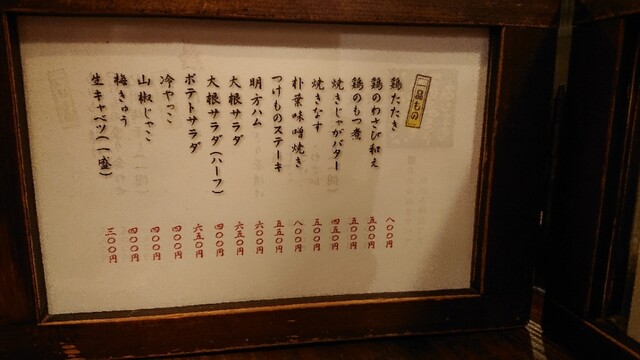 一品もの
鶏たたき 八〇〇円
鶏のわさび和え 五〇〇円
鶏のもつ煮 五〇〇円
焼きじゃがバター 四五〇円
焼きなす 五〇〇円
朴葉味噌焼き 八〇〇円
つけものステーキ 五五〇円
明方ハム 六〇〇円
大根サラダ 六五〇円
大根サラダ(ハーフ) 四〇〇円
ポテトサラダ 六五〇円
冷やっこ 四〇〇円
山椒じゃこ 四〇〇円
梅きゅう 四〇〇円
生キャベツ(一盛) 三〇〇円